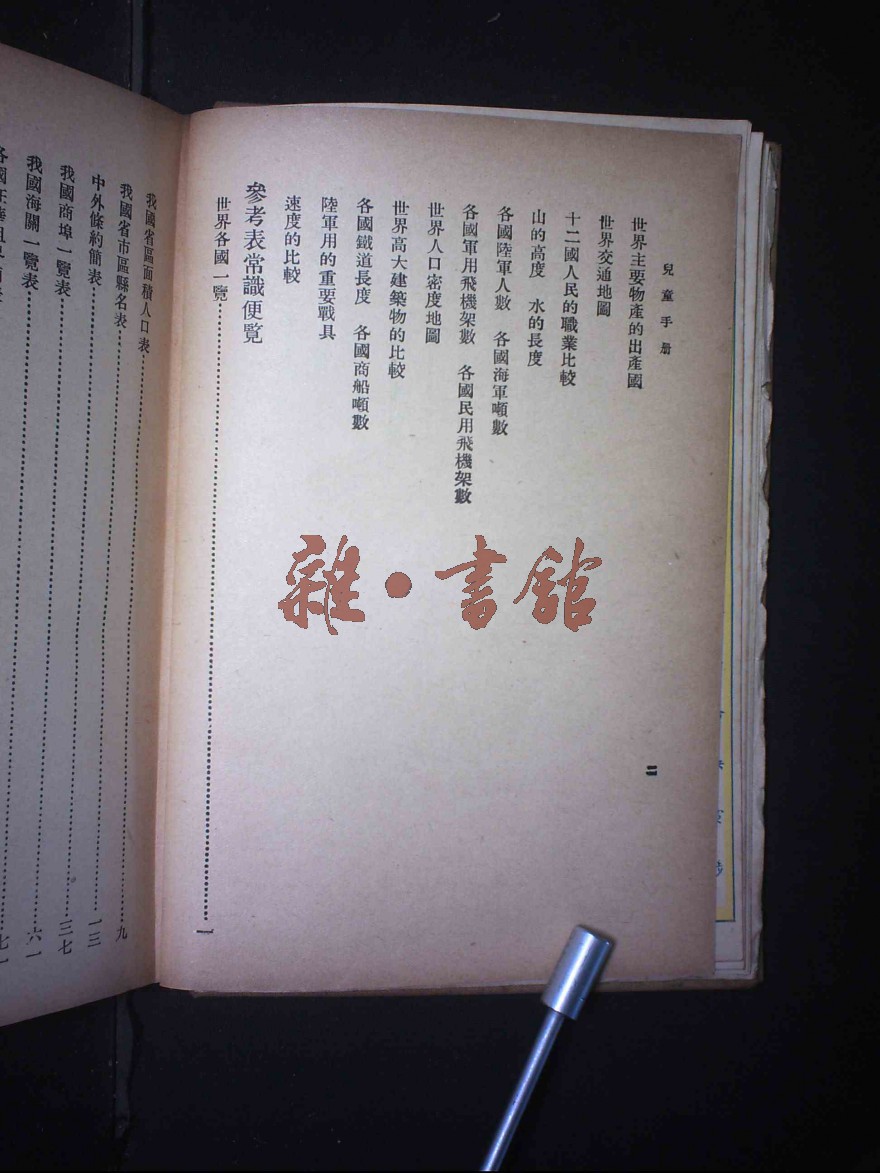 兒童手册
世界主要物產的出產國
世界交通地圖
十二國人民的職業比較
山的高度 水的長度
各國陸軍人數 各國海軍噸數
各國軍用飛機架數 各國民用飛機架數
世界人口密度地圖
世界高大建築物的比較
各國鐵道長度 各國商船噸數
陸軍用的重要戰具
速度的比較
參考表常識便覽
世界各國一覽……一
二
我國省區面積人口表
我國省市區縣名表……九
中外條約簡表……一三
我國商埠一覽表……三七
我國海關一覽表……六一
七一
雜·書館